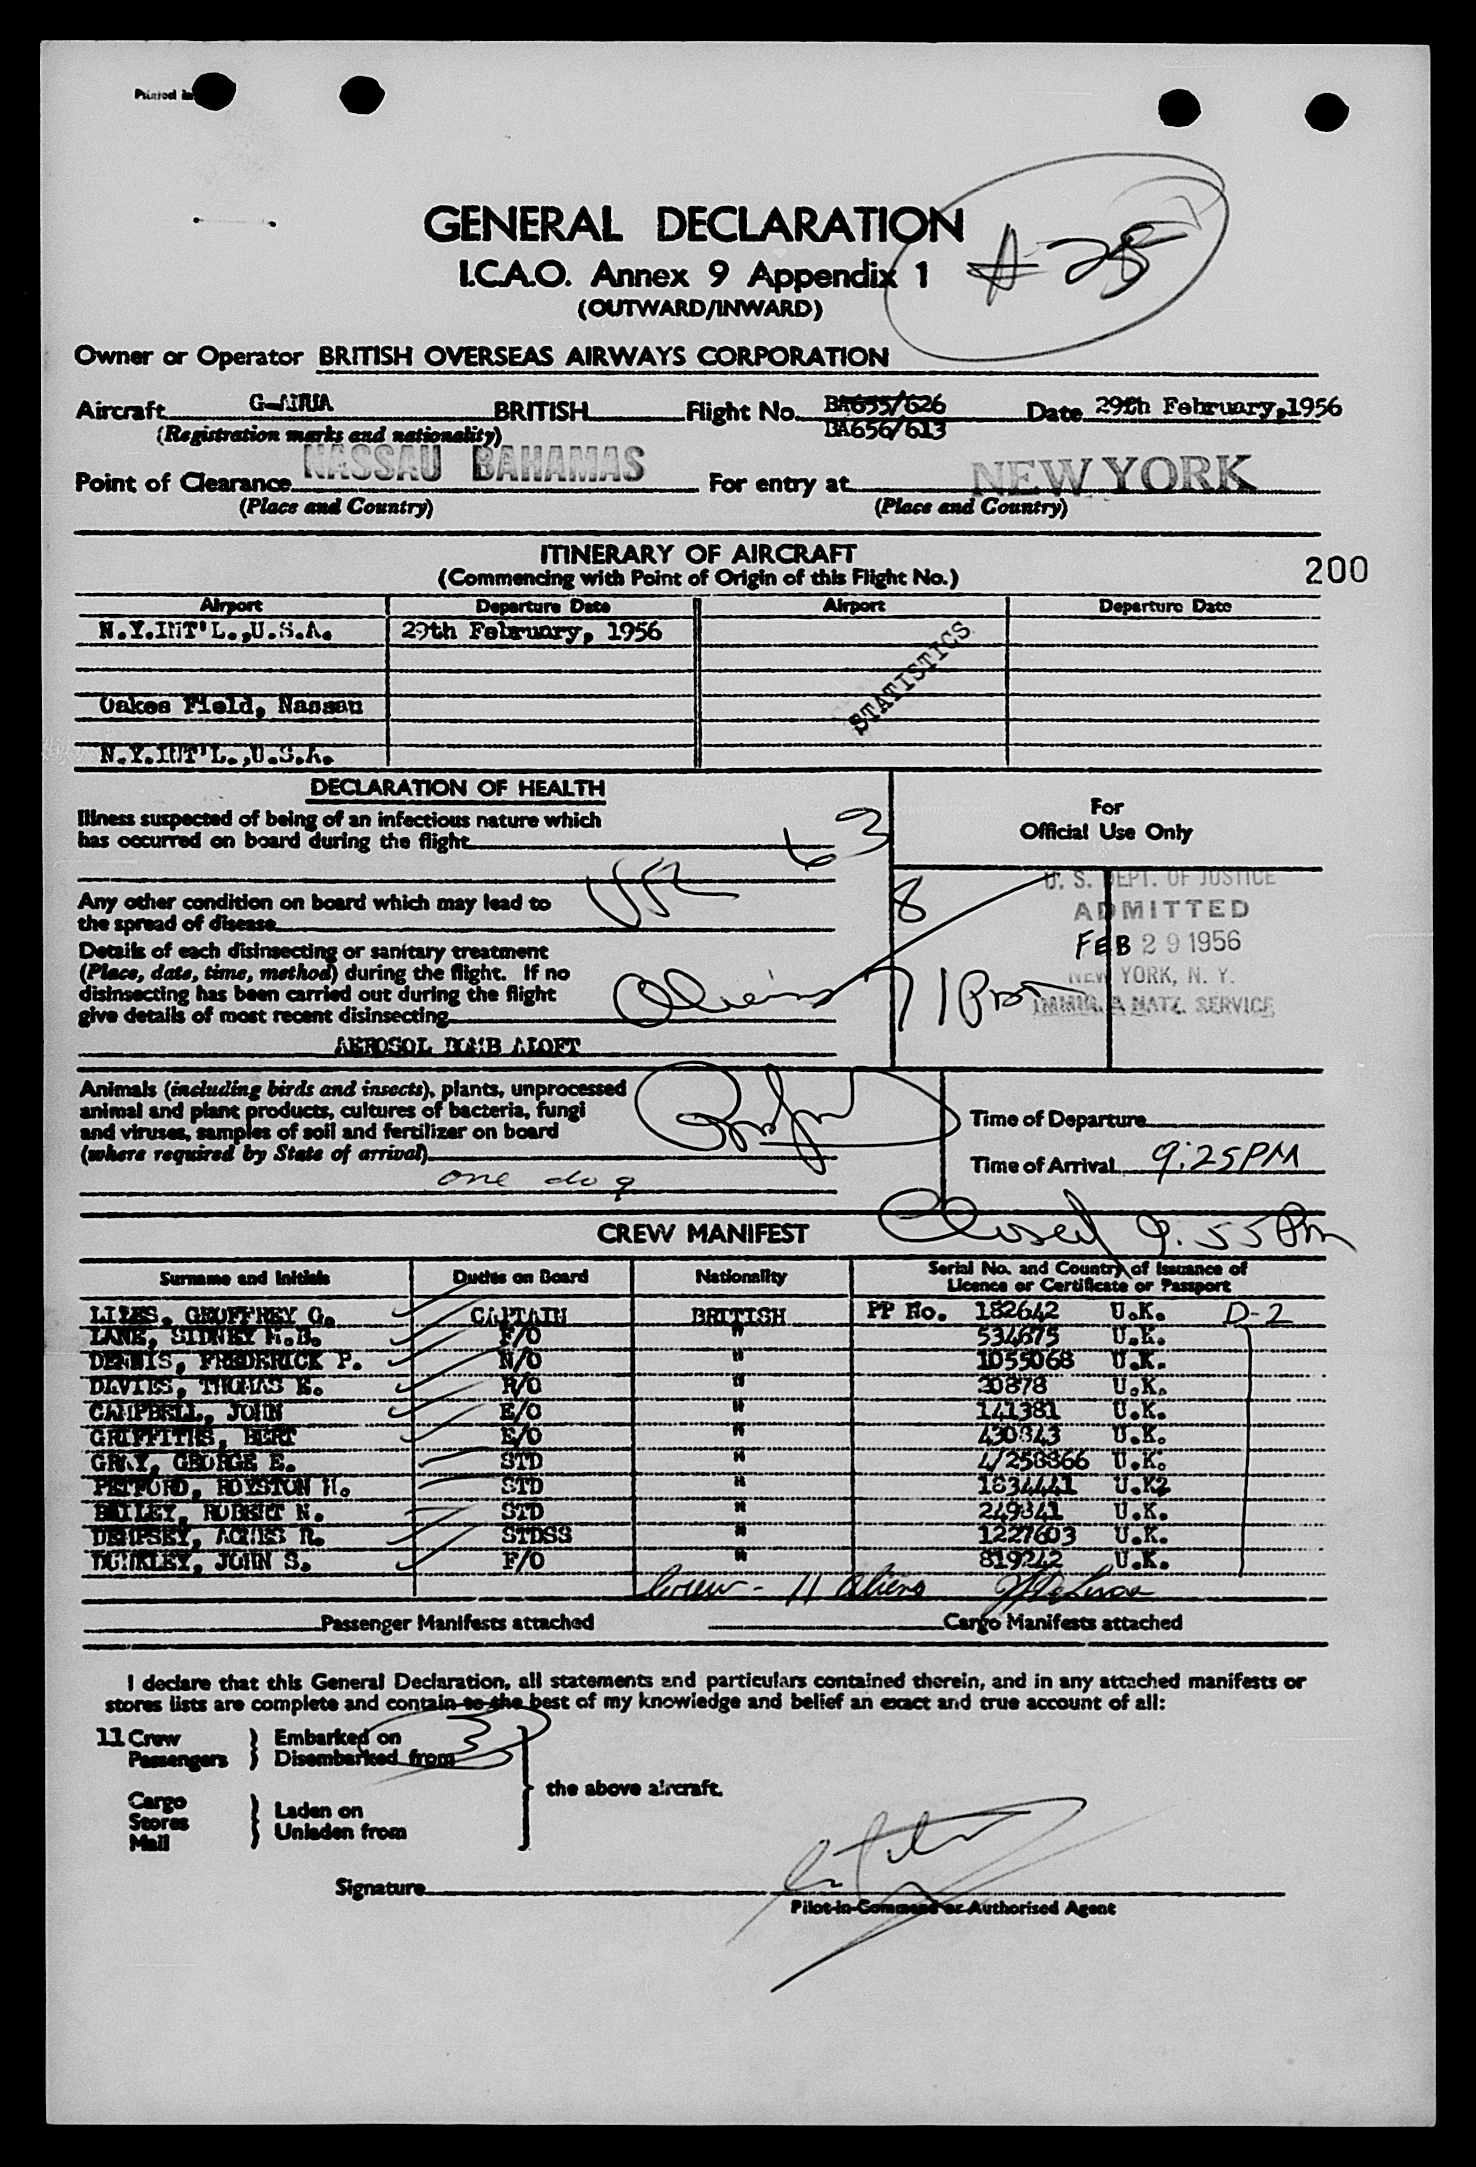 Printed in
GENERAL DECLARATION
I.C.A.O. Annex 9 Appendix 1
(OUTWARD/INWARD)
A-28
Owner or Operator BRITISH OVERSEAS AIRWAYS CORPORATION
Aircraft BRITISH Flight No. BA655/626 Date 29th February, 1956
(Registration marks and nationality) BA656/613
Point of Clearance NASSAU BAHAMAS For entry at NEW YORK
(Place and Country) (Place and Country)
ITINERARY OF AIRCRAFT
(Commencing with Point of Origin of this Flight No.)
200
Airport Departure Date Airport Departure Date
N.Y.INT'L.,U.S.A. 29th February, 1956
STATISTICS
Oakes Field, Nassau
N.Y.INT'L.,U.S.A.
DECLARATION OF HEALTH
For
Official Use Only
Illness suspected of being of an infectious nature which
has occurred on board during the flight
63
Any other condition on board which may lead to
the spread of disease
8
U. S. DEPT. OF JUSTICE
ADMITTED
FEB 29 1956
NEW YORK, N. Y.
IMMIG. & NATZ. SERVICE
Details of each disinsecting or sanitary treatment
(Place, date, time, method) during the flight. If no
disinsecting has been carried out during the flight
give details of most recent disinsecting
Aliens 71
AEROSOL BOMB ALOFT
Animals (including birds and insects), plants, unprocessed
animal and plant products, cultures of bacteria, fungi
and viruses, samples of soil and fertilizer on board
(where required by State of arrival)
one dog
Time of Departure
Time of Arrival 9:25PM
Closed 9.55 Pm
CREW MANIFEST
Surname and Initials Duties on Board Nationality Serial No. and Country of Issuance of
Licence or Certificate or Passport
LILES, GEOFFREY G. CAPTAIN BRITISH PP No. 182642 U.K. D-2
LANE, SIDNEY H.B. F/O " 534675 U.K.
DENNIS, FREDERICK P. N/O " 1055068 U.K.
DAVIES, THOMAS E. R/O " 20878 U.K.
CAMPBELL, JOHN E/O " 141381 U.K.
GRIFFITHS, BERT E/O " 430843 U.K.
GRAY, GEORGE E. STD " 4/258866 U.K.
PETFORD, ROYSTON H. STD " 1834441 U.K.
BAILEY, ROBERT N. STD " 249841 U.K.
DEMPSEY, AGNES R. STDSS " 1227603 U.K.
DUNKLEY, JOHN S. F/O " 819242 U.K.
Crew - 11 Aliens
Passenger Manifests attached Cargo Manifests attached
I declare that this General Declaration, all statements and particulars contained therein, and in any attached manifests or
stores lists are complete and contain to the best of my knowledge and belief an exact and true account of all:
11 Crew } Embarked on
Passengers } Disembarked from
3
the above aircraft.
Cargo
Stores } Laden on
Mail } Unladen from
Signature
Pilot-in-Command or Authorised Agent